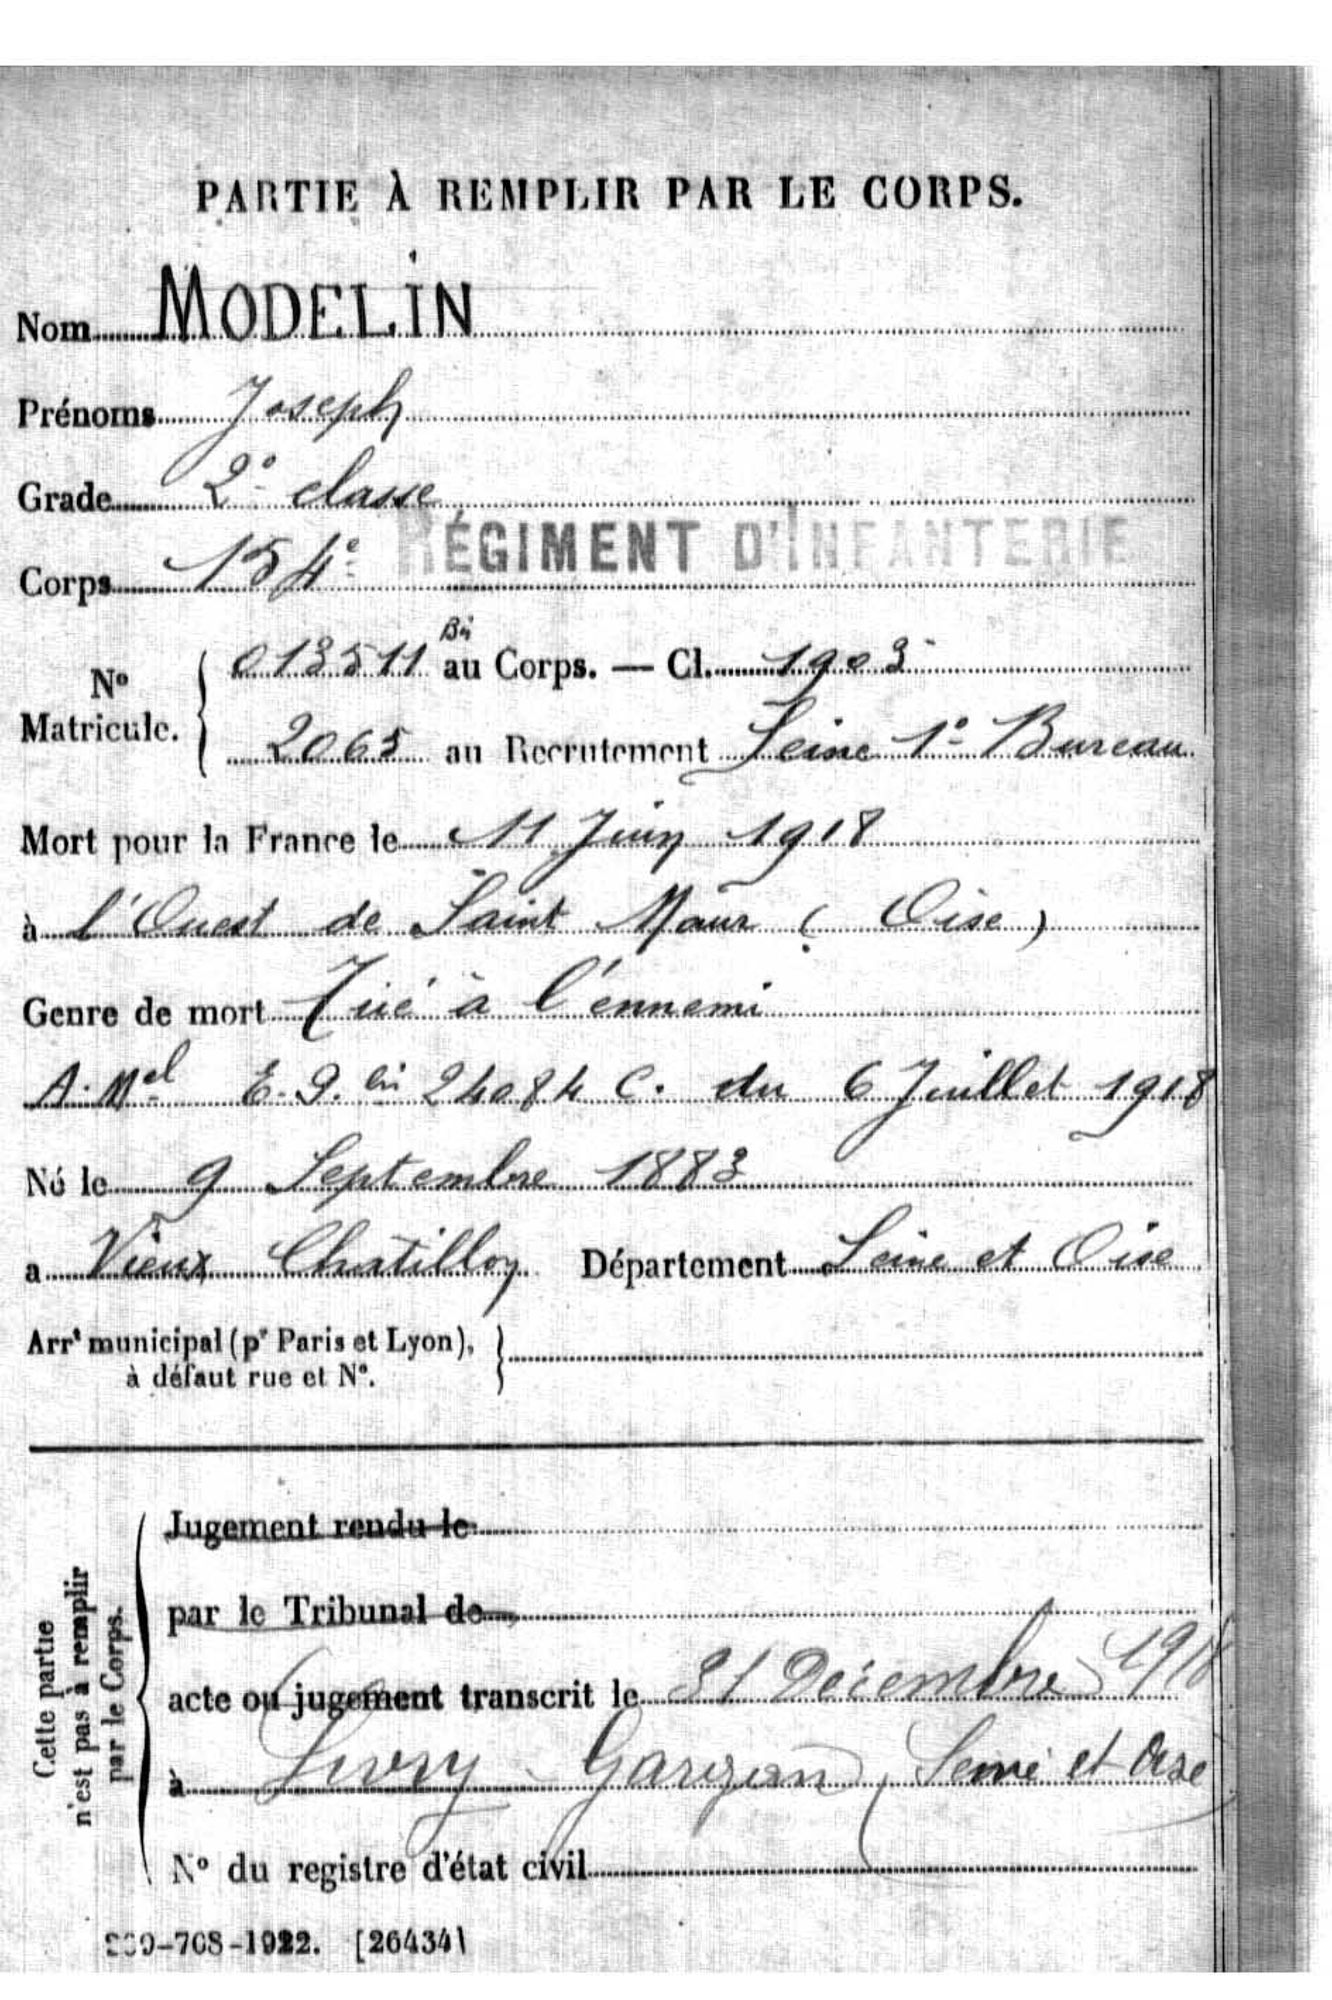 PARTIE À REMPLIR PAR LE CORPS.
Nom MODELIN
Prénoms Joseph
Grade 2e classe
Corps 154e RÉGIMENT D'INFANTERIE
Bis
N° Matricule. { 013511 au Corps. — Cl. 1903
2065 au Recrutement Seine 1er Bureau
Mort pour la France le 11 Juin 1918
à l'Ouest de Saint Maur (Oise)
Genre de mort Tué à l'ennemi
A. Mel E. G. 24084 C. du 6 Juillet 1918
Né le 9 Septembre 1883
à Vieux Chatillon Département Seine et Oise
Arrt municipal (pr Paris et Lyon), }
à défaut rue et N°.
Cette partie n'est pas à remplir par le Corps.
Jugement rendu le
par le Tribunal de
acte ou jugement transcrit le 31 Décembre 1918
à Livry Gargan (Seine et Oise)
N° du registre d'état civil
-708-1922. [26434]